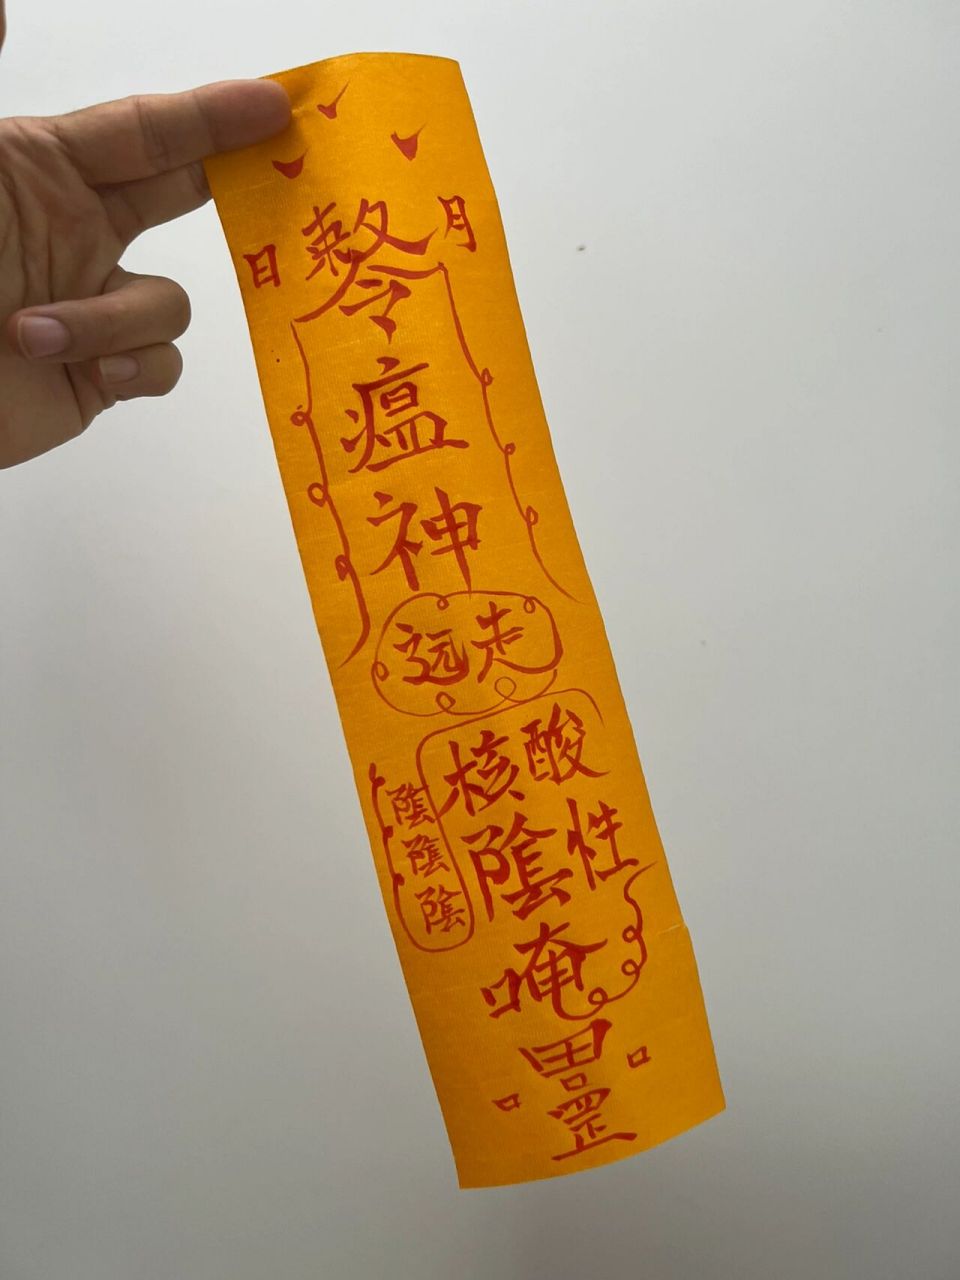 日 敕 月
令
瘟
神
远走
核酸
陰性
陰
陰
陰
唵